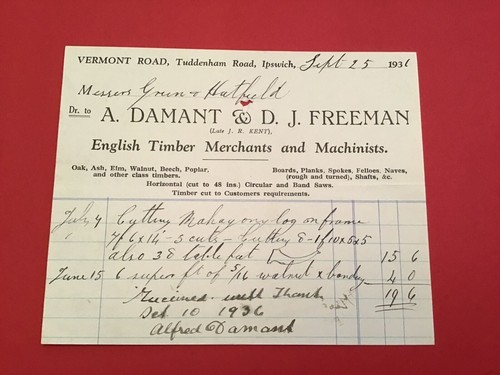 VERMONT ROAD, Tuddenham Road, Ipswich, Sept 25 1936
Messers Green & Hatfield
Dr. to A. DAMANT & D. J. FREEMAN
(Late J. R. KENT),
English Timber Merchants and Machinists.
Oak, Ash, Elm, Walnut, Beech, Poplar, and other class timbers.
Boards, Planks, Spokes, Felloes, Naves, (rough and turned), Shafts, &c.
Horizontal (cut to 48 ins.) Circular and Band Saws.
Timber cut to Customers requirements.
July 9 Cutting Mahagony log on frame
7f 6 x 14 - 5 cuts - Cutting 8 - 1f 10 x 5 x 5
also 38 table 15 6
June 15 6 super ft of 5/16 walnut x 4 0
19 6
Received with Thanks
Oct 10 1936
Alfred Damant